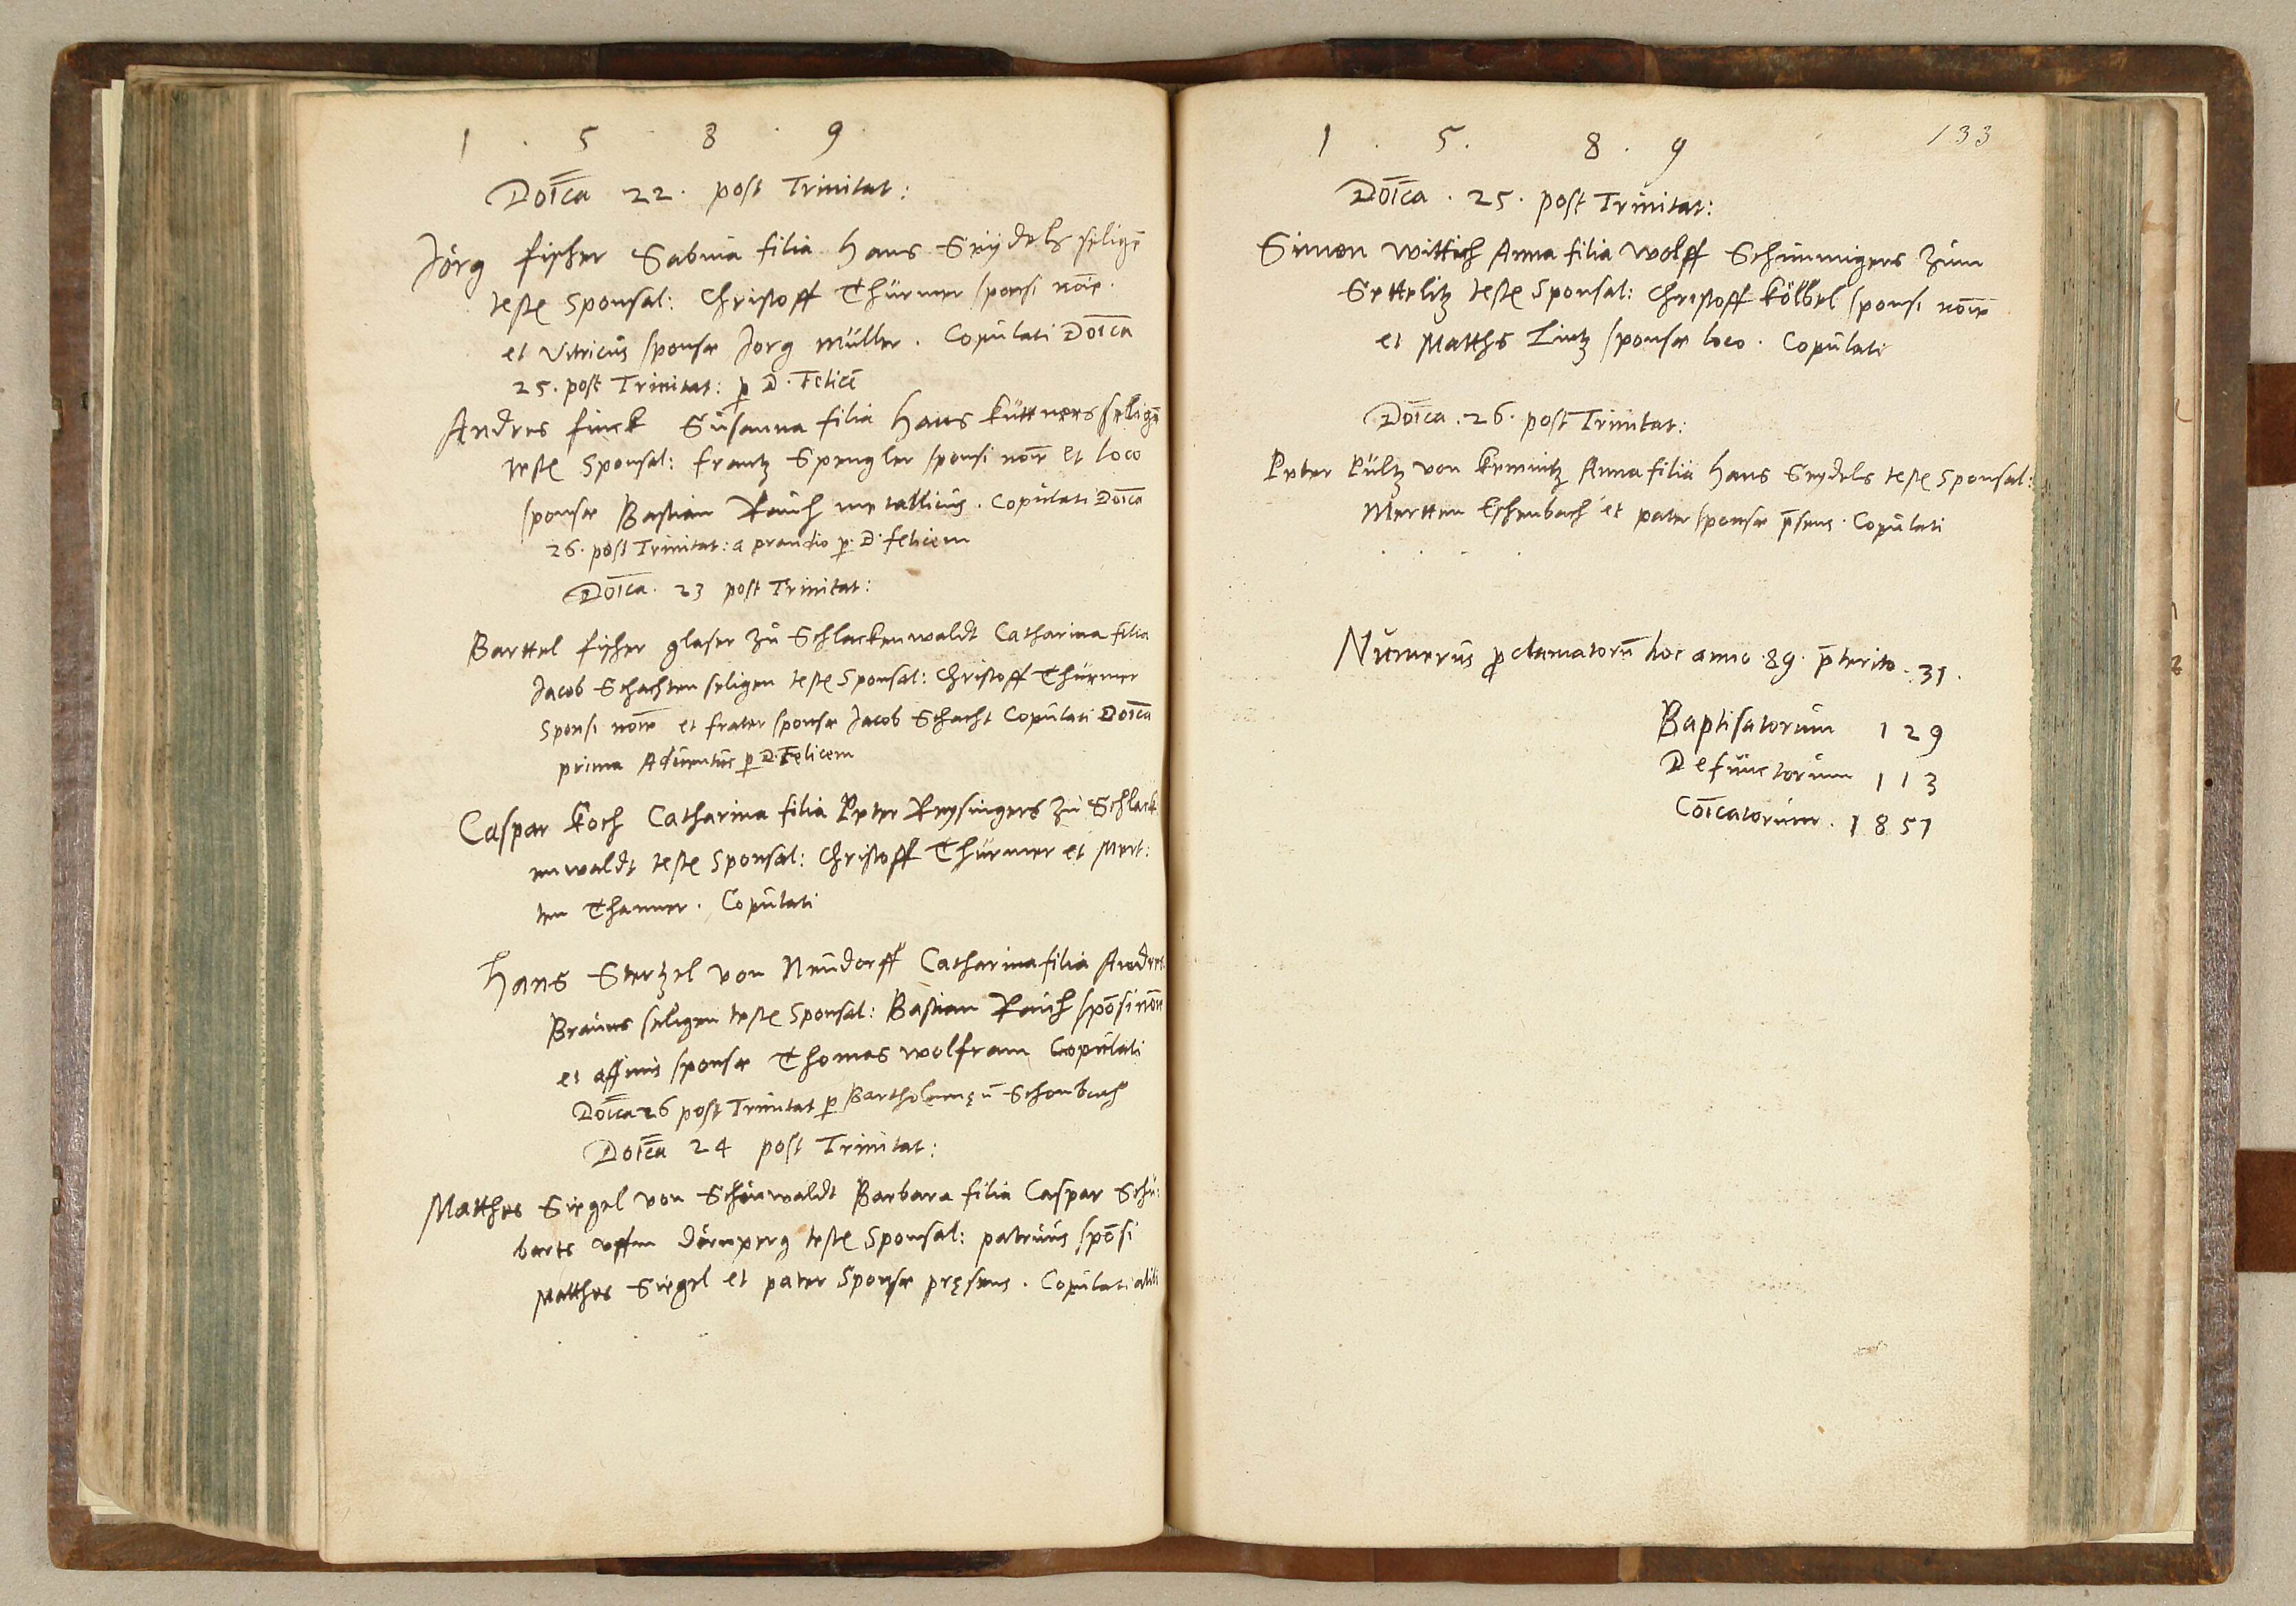 1 . 5 . 8 . 9
Doīca 22. post Trinitat:
Jörg fischer Sabina filia Hans Seÿdels seligē
teste Sponsal: Christoff Thürmer sponsi noīe.
et Vitricus sponsæ Jorg Müller. Copulati Doīca
25. post Trinitat: p D. Felicē
Andres finck Susanna filia Hans küttners seligē
teste Sponsal: frantz Spengler sponsi noīe et loco
sponsæ Bastian Rauch metallicus. Copulati Doīca
26. post Trinitat: a prandio p. D. felicem
Doīca. 23 post Trinitat:
Barttel fischer glaser zu Schlackenwaldt Catharina filia
Jacob Schachten seligen teste Sponsal: Christoff Thürmer
Sponsi noīe et frater sponsæ Jacob Schacht Copulati Doīca
prima Aduentus p D. Felicem
Caspar koch Catharina filia Peter Reysingers zu Schlack
enwaldt teste Sponsal: Christoff Thürmer et Mert:
ten Thanner. Copulati
Hans Stertzel von Neudorff Catharina filia Andres
Brauns seligen teste Sponsal: Bastian Rauch spōsi noīe
et affinis sponsæ Thomas wolfram Copulati
Doīca 26 post Trinitat p Bartholomęū Schonbach
Doīca 24 post Trinitat:
Matthes Siegel von Schönwaldt Barbara filia Caspar Schu:
barts uffm dörnperg teste Sponsal: patruus spōsi
Matthes Siegel et pater Sponsæ pręsens. Copulati alibi
1 . 5 . 8 . 9
133
Doīca . 25. post Trinitat:
Simon wittich Anna filia wolff Schimmigers zum
Settelitz teste Sponsal: Christoff kölbel sponsi noīe
et Matths Lintz sponsæ loco. Copulati
Doīca . 26. post Trinitat:
Peter Pültz von kemnitz Anna filia Hans Seydels teste Sponsal:
Mertten Eschenbach et pater sponsæ p̄sens. Copulati
Numerus p̄clamatorū hoc anno .89. p̄terito. 31.
Baptisatorum 129
Defunctorum 113
Coīcatorum. 1851